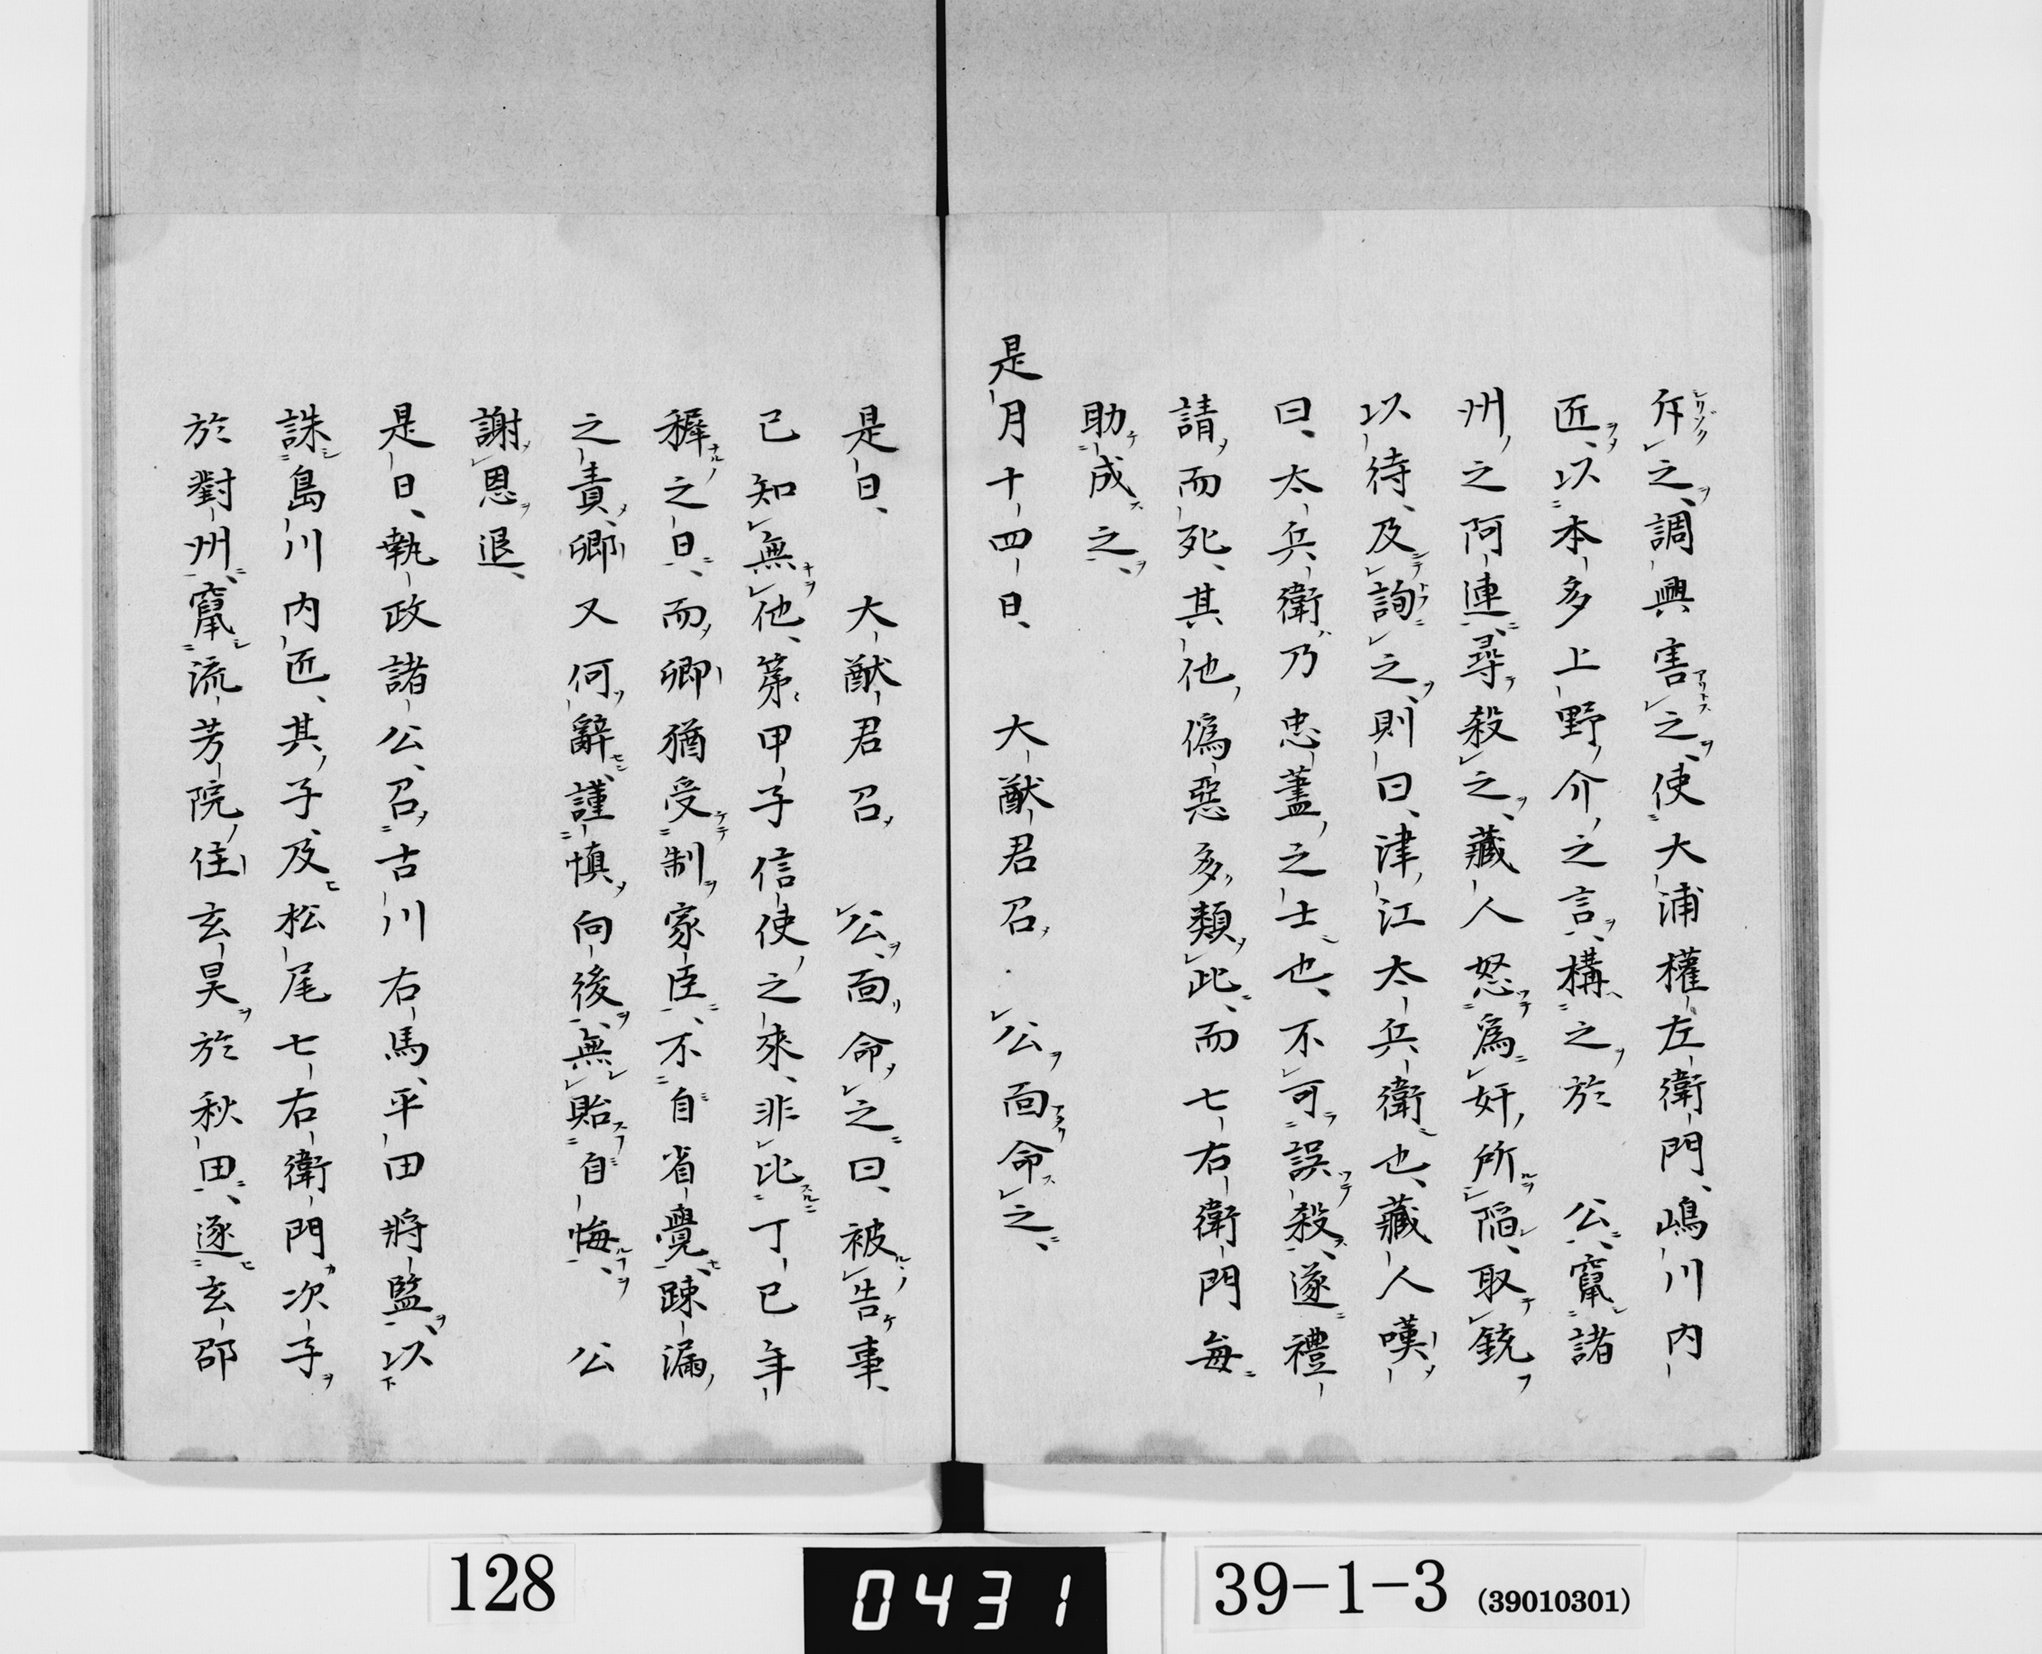 斥之、調興害之、使大浦權左衛門、嶋川内
匠、以本多上野介之言、構之於　公、竄諸
州之阿連、尋殺之、藏人怒爲奸所陷、取銃
以待、及詢之、則曰、津江太兵衛也、藏人嘆
曰、太兵衛乃忠藎之士也、不可誤殺、遂禮
請而死、其他偽惡多類此、而七右衛門每
助成之、
是月十四日、　大猷君召　公、面命之、
是日、　大猷君召　公、面命之曰、被告事、
已知無他、第甲子信使之來、非比丁巳年
穉之日、而卿猶受制家臣、不自省覺、踈漏
之責、卿又何辭、謹慎向後、無貽自悔、　公
謝恩退、
是日、執政諸公、召古川右馬、平田將監、以
誅島川内匠、其子、及松尾七右衛門次子
於對州、竄流芳院住玄昊於秋田、逐玄郘
128
0431
39-1-3 (39010301)